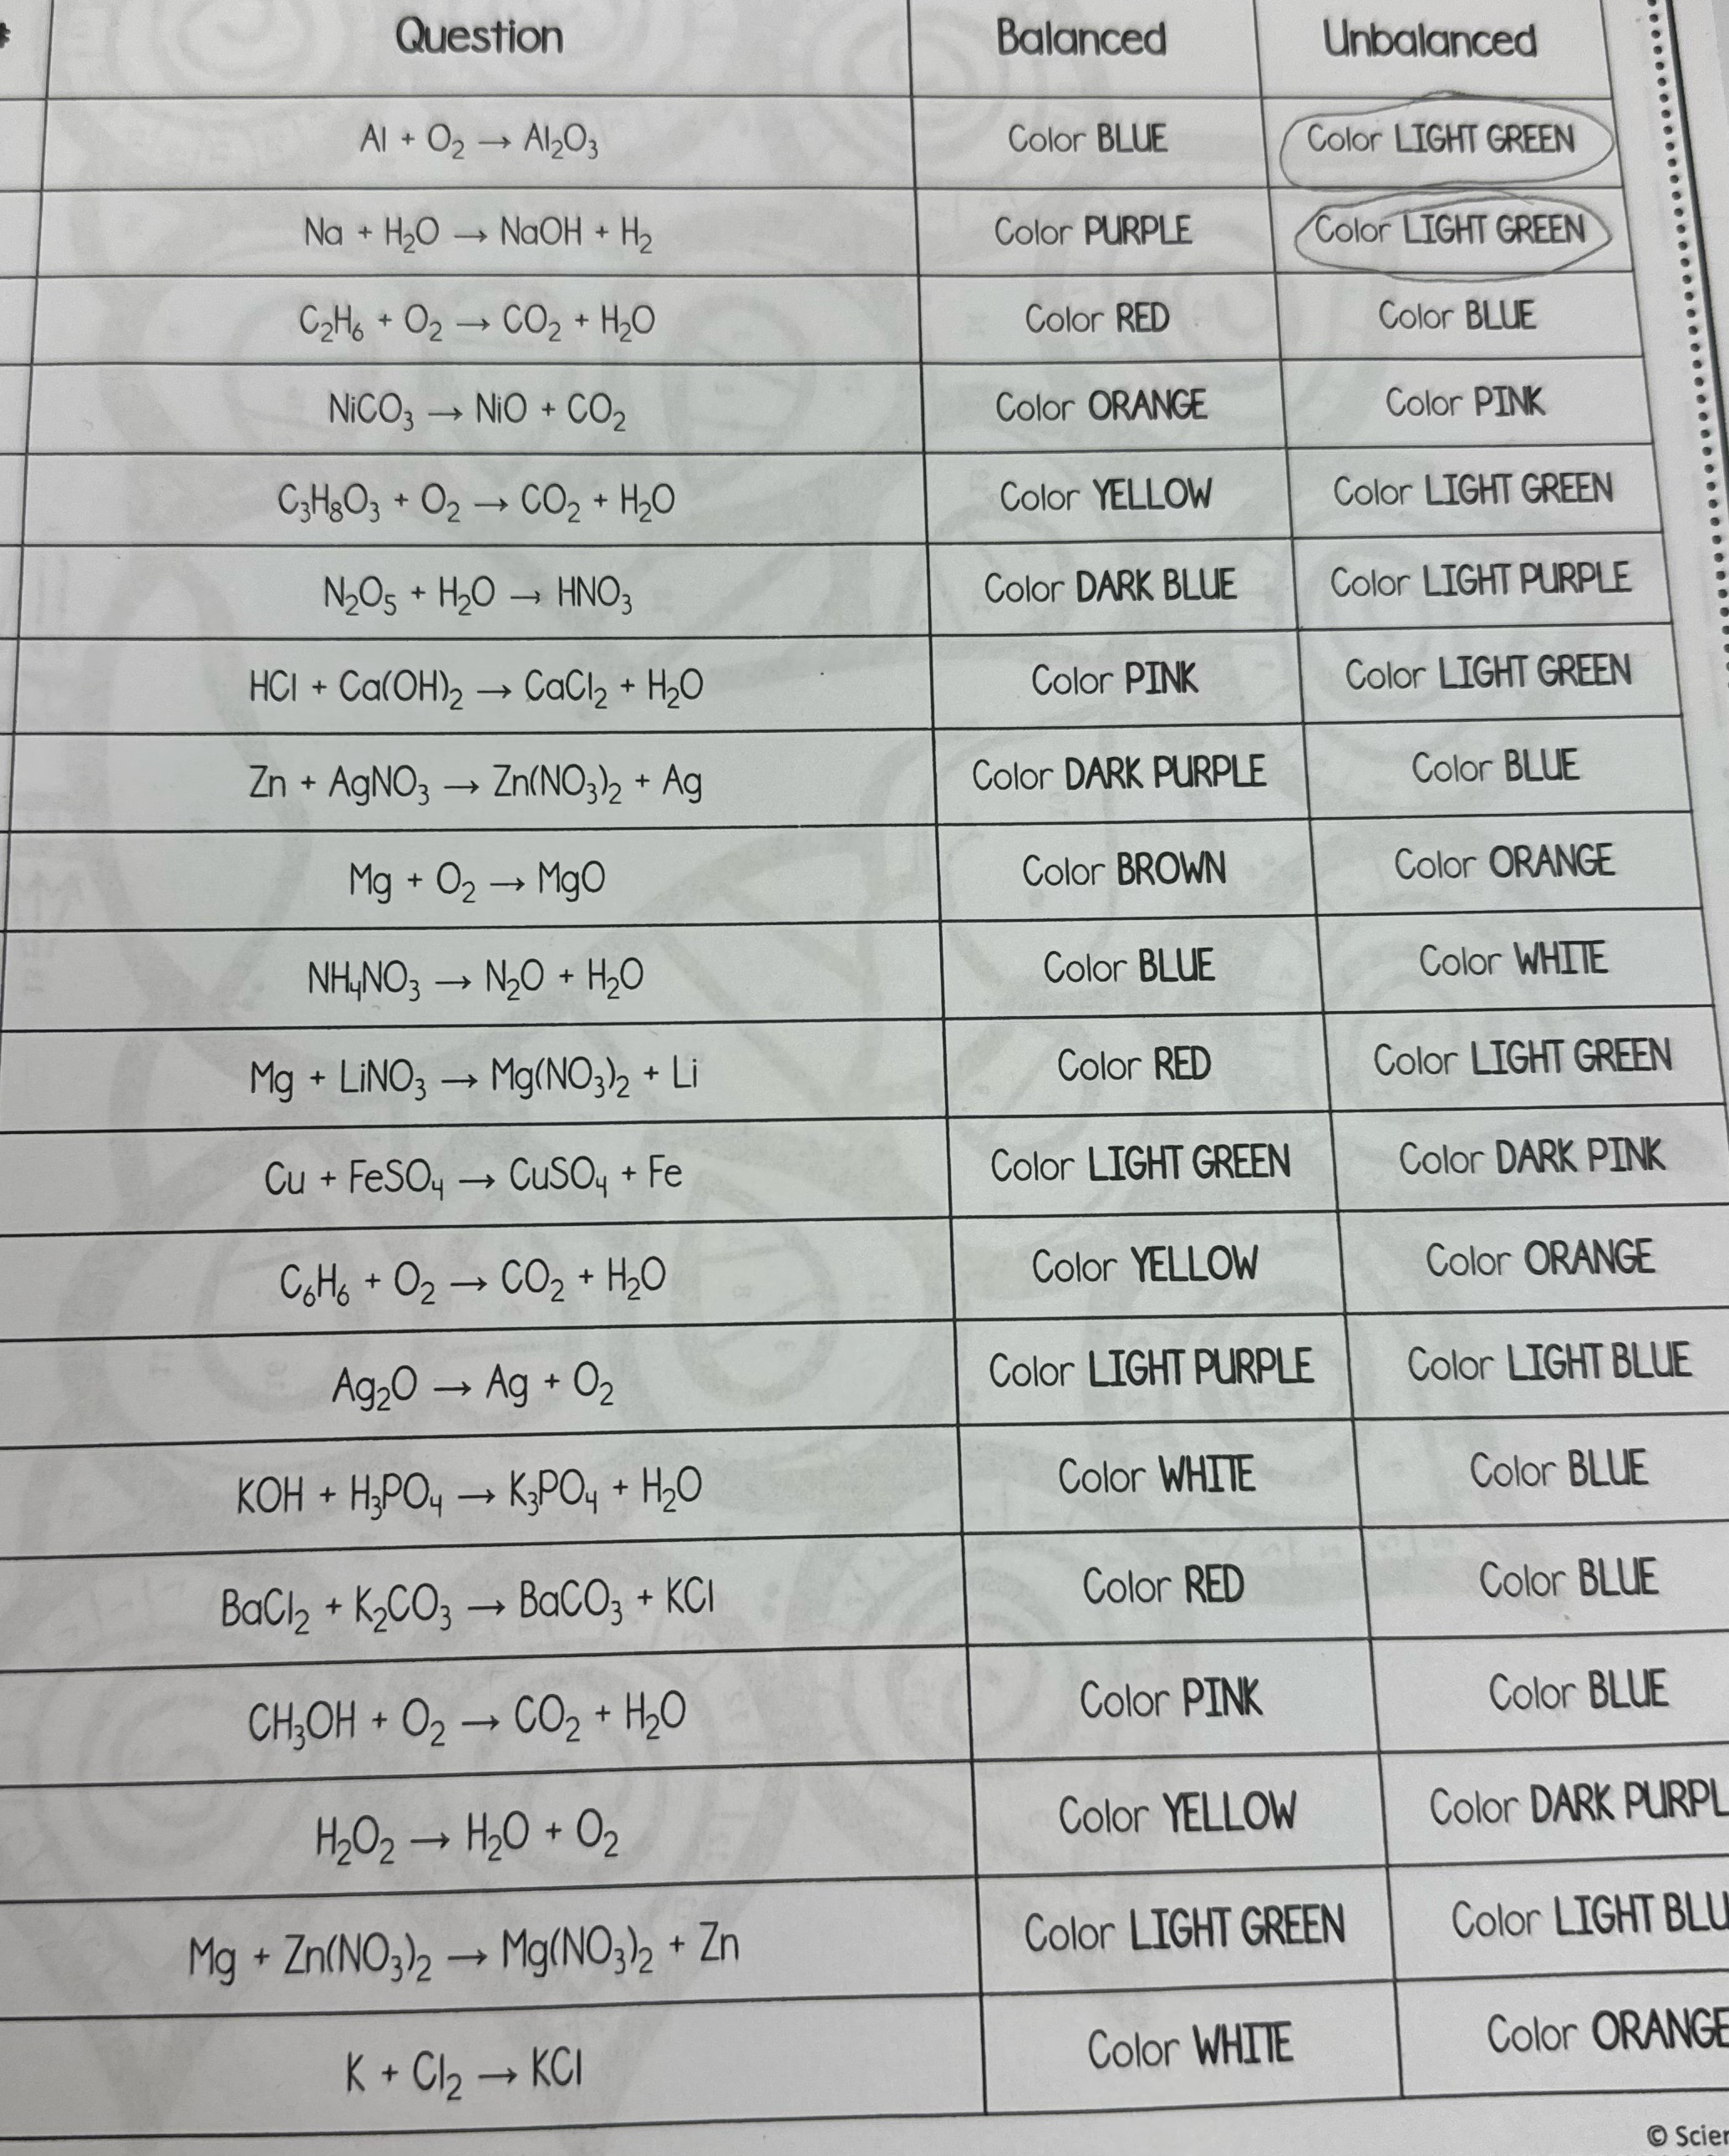 Question Balanced Unbalanced
Al + O₂ → Al₂O₃ Color BLUE Color LIGHT GREEN
Na + H₂O → NaOH + H₂ Color PURPLE Color LIGHT GREEN
C₂H₆ + O₂ → CO₂ + H₂O Color RED Color BLUE
NiCO₃ → NiO + CO₂ Color ORANGE Color PINK
C₃H₈O₃ + O₂ → CO₂ + H₂O Color YELLOW Color LIGHT GREEN
N₂O₅ + H₂O → HNO₃ Color DARK BLUE Color LIGHT PURPLE
HCl + Ca(OH)₂ → CaCl₂ + H₂O Color PINK Color LIGHT GREEN
Zn + AgNO₃ → Zn(NO₃)₂ + Ag Color DARK PURPLE Color BLUE
Mg + O₂ → MgO Color BROWN Color ORANGE
NH₄NO₃ → N₂O + H₂O Color BLUE Color WHITE
Mg + LiNO₃ → Mg(NO₃)₂ + Li Color RED Color LIGHT GREEN
Cu + FeSO₄ → CuSO₄ + Fe Color LIGHT GREEN Color DARK PINK
C₆H₆ + O₂ → CO₂ + H₂O Color YELLOW Color ORANGE
Ag₂O → Ag + O₂ Color LIGHT PURPLE Color LIGHT BLUE
KOH + H₃PO₄ → K₃PO₄ + H₂O Color WHITE Color BLUE
BaCl₂ + K₂CO₃ → BaCO₃ + KCl Color RED Color BLUE
CH₃OH + O₂ → CO₂ + H₂O Color PINK Color BLUE
H₂O₂ → H₂O + O₂ Color YELLOW Color DARK PURPL
Mg + Zn(NO₃)₂ → Mg(NO₃)₂ + Zn Color LIGHT GREEN Color LIGHT BLU
K + Cl₂ → KCl Color WHITE Color ORANGE
© Scien